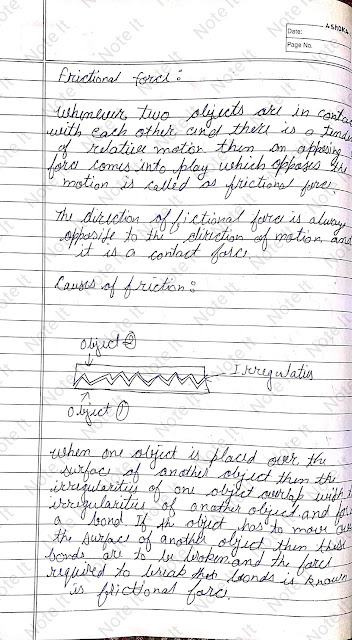 ASHOKA
Date:
Page No.
Frictional force :
Whenever two objects are in contac
with each other and there is a tende
of relative motion then an opposing
force comes into play which opposes the
motion is called as frictional force.
The direction of fictional force is always
opposite to the direction of motion and
it is a contact force.
Causes of friction :
Object 2
Irregulaties
Object 1
when one object is placed over the
surface of another object then the
irregularities of one object overlap with
irregularities of another object and
a bond If the object has to move over
the surface of another object then these
bonds are to be broken and the force
required to break the bonds is known
is frictional force.